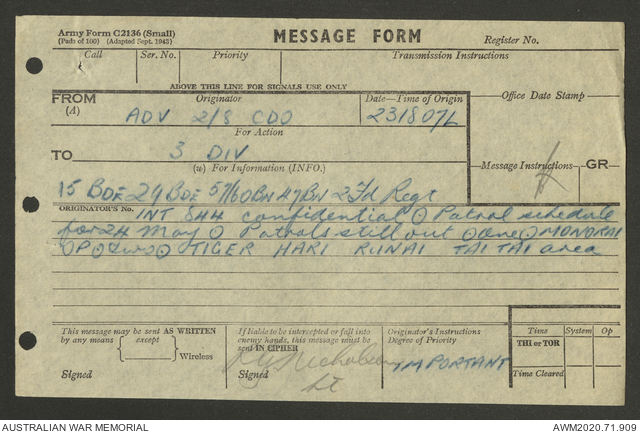 Army Form C2136 (Small)
(Pads of 100) (Adapted Sept. 1943)
MESSAGE FORM
Register No.
Call Ser. No. Priority Transmission Instructions
ABOVE THIS LINE FOR SIGNALS USE ONLY
FROM Originator Date—Time of Origin Office Date Stamp
(A) ADV 2/8 CDO 231807L
For Action
TO 3 DIV
(u) For Information (INFO.) Message Instructions GR
15 BDE 29 BDE 57/60 BN 47 BN 2 Fd Regt
ORIGINATOR'S No. INT 844 confidential () Patrol schedule
for 24 May () Patrols still out () one () MONORAI
OP () two () TIGER HARI RUNAI TAI TAI area
This message may be sent AS WRITTEN
by any means except
Wireless
Signed
If liable to be intercepted or fall into
enemy hands, this message must be
sent IN CIPHER
Nicholson
Lt
Signed
Originator's Instructions
Degree of Priority
IMPORTANT
Time System Op
THI or TOR
Time Cleared
AUSTRALIAN WAR MEMORIAL AWM2020.71.909